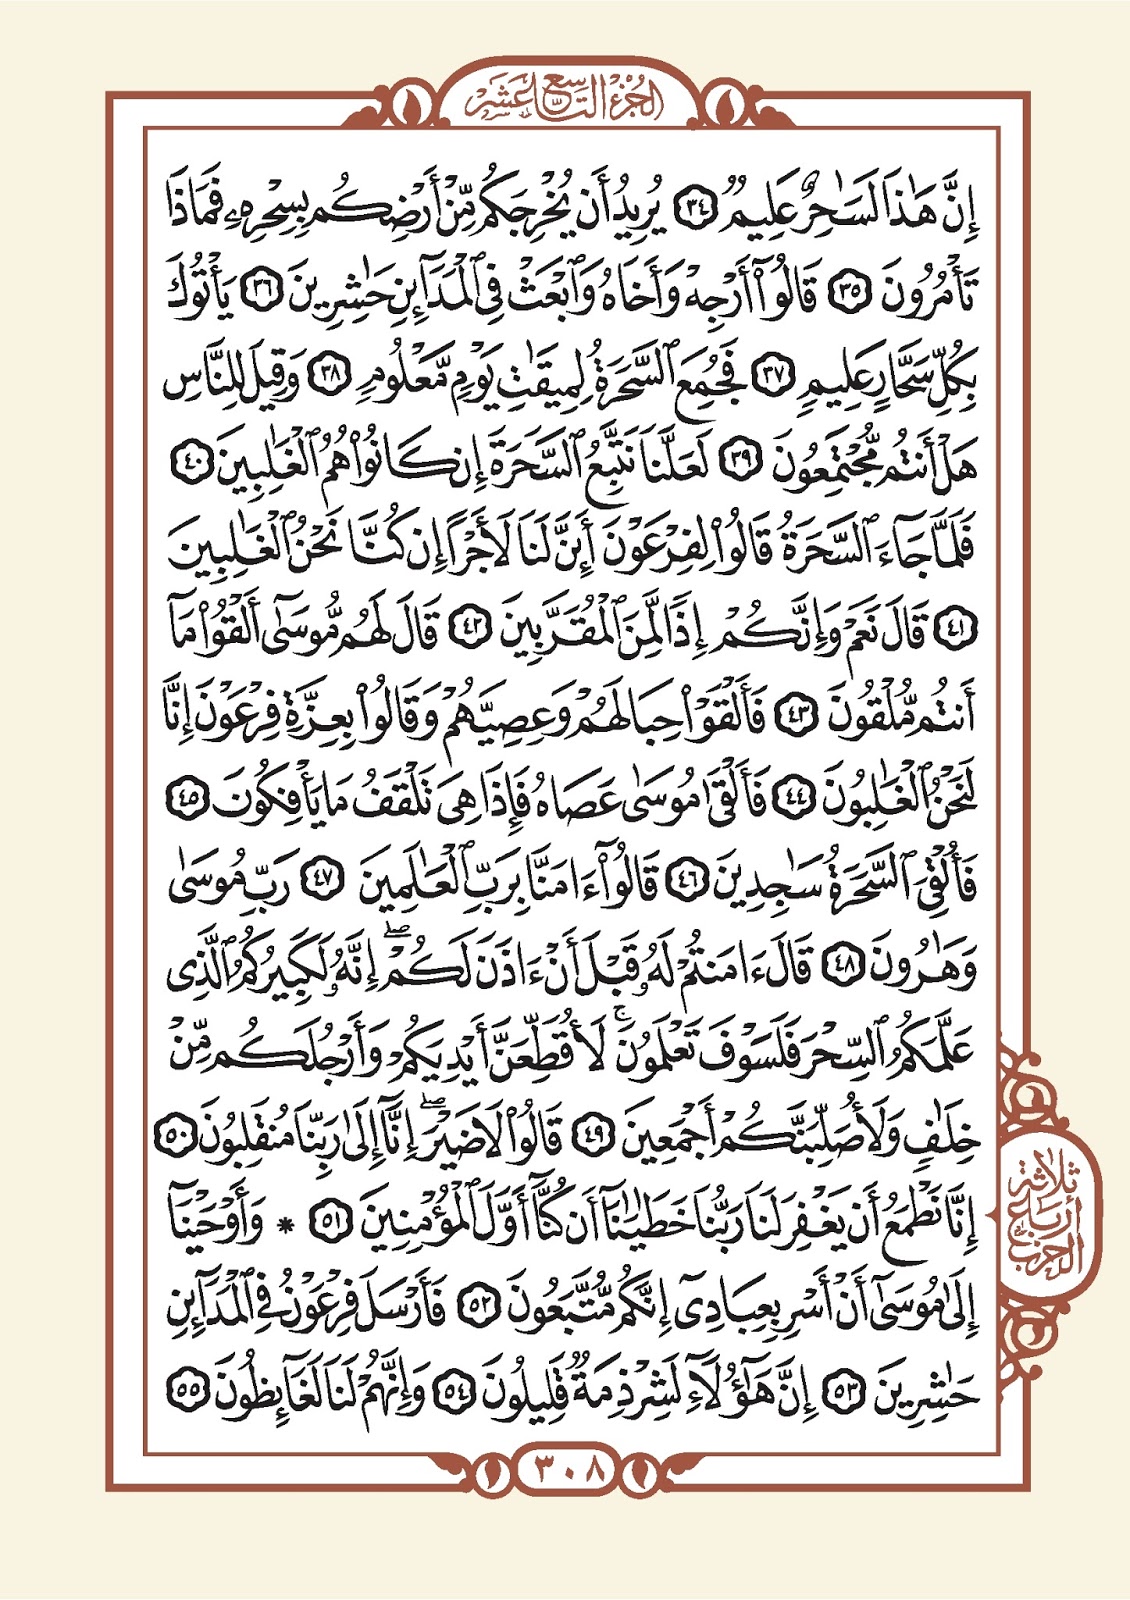 الجزء التاسع عشر
إِنَّ هَٰذَا لَسَٰحِرٌ عَلِيمٞ ٣٤ يُرِيدُ أَن يُخۡرِجَكُم مِّنۡ أَرۡضِكُم بِسِحۡرِهِۦ فَمَاذَا
تَأۡمُرُونَ ٣٥ قَالُوٓاْ أَرۡجِهۡ وَأَخَاهُ وَٱبۡعَثۡ فِي ٱلۡمَدَآئِنِ حَٰشِرِينَ ٣٦ يَأۡتُوكَ
بِكُلِّ سَحَّارٍ عَلِيمٖ ٣٧ فَجُمِعَ ٱلسَّحَرَةُ لِمِيقَٰتِ يَوۡمٖ مَّعۡلُومٖ ٣٨ وَقِيلَ لِلنَّاسِ
هَلۡ أَنتُم مُّجۡتَمِعُونَ ٣٩ لَعَلَّنَا نَتَّبِعُ ٱلسَّحَرَةَ إِن كَانُواْ هُمُ ٱلۡغَٰلِبِينَ ٤٠
فَلَمَّا جَآءَ ٱلسَّحَرَةُ قَالُواْ لِفِرۡعَوۡنَ أَئِنَّ لَنَا لَأَجۡرًا إِن كُنَّا نَحۡنُ ٱلۡغَٰلِبِينَ
٤١ قَالَ نَعَمۡ وَإِنَّكُمۡ إِذٗا لَّمِنَ ٱلۡمُقَرَّبِينَ ٤٢ قَالَ لَهُم مُّوسَىٰٓ أَلۡقُواْ مَآ
أَنتُم مُّلۡقُونَ ٤٣ فَأَلۡقَوۡاْ حِبَالَهُمۡ وَعِصِيَّهُمۡ وَقَالُواْ بِعِزَّةِ فِرۡعَوۡنَ إِنَّا
لَنَحۡنُ ٱلۡغَٰلِبُونَ ٤٤ فَأَلۡقَىٰ مُوسَىٰ عَصَاهُ فَإِذَا هِيَ تَلۡقَفُ مَا يَأۡفِكُونَ ٤٥
فَأُلۡقِيَ ٱلسَّحَرَةُ سَٰجِدِينَ ٤٦ قَالُوٓاْ ءَامَنَّا بِرَبِّ ٱلۡعَٰلَمِينَ ٤٧ رَبِّ مُوسَىٰ
وَهَٰرُونَ ٤٨ قَالَ ءَامَنتُمۡ لَهُۥ قَبۡلَ أَنۡ ءَاذَنَ لَكُمۡۖ إِنَّهُۥ لَكَبِيرُكُمُ ٱلَّذِي
عَلَّمَكُمُ ٱلسِّحۡرَ فَلَسَوۡفَ تَعۡلَمُونَۚ لَأُقَطِّعَنَّ أَيۡدِيَكُمۡ وَأَرۡجُلَكُم مِّنۡ
خِلَٰفٖ وَلَأُصَلِّبَنَّكُمۡ أَجۡمَعِينَ ٤٩ قَالُواْ لَا ضَيۡرَۖ إِنَّآ إِلَىٰ رَبِّنَا مُنقَلِبُونَ ٥٠
إِنَّا نَطۡمَعُ أَن يَغۡفِرَ لَنَا رَبُّنَا خَطَٰيَٰنَآ أَن كُنَّآ أَوَّلَ ٱلۡمُؤۡمِنِينَ ٥١ * وَأَوۡحَيۡنَآ
إِلَىٰ مُوسَىٰٓ أَنۡ أَسۡرِ بِعِبَادِيٓ إِنَّكُم مُّتَّبَعُونَ ٥٢ فَأَرۡسَلَ فِرۡعَوۡنُ فِي ٱلۡمَدَآئِنِ
حَٰشِرِينَ ٥٣ إِنَّ هَٰٓؤُلَآءِ لَشِرۡذِمَةٞ قَلِيلُونَ ٥٤ وَإِنَّهُمۡ لَنَا لَغَآئِظُونَ ٥٥
ثلاثة
أرباع
الحزب
٣٠٨